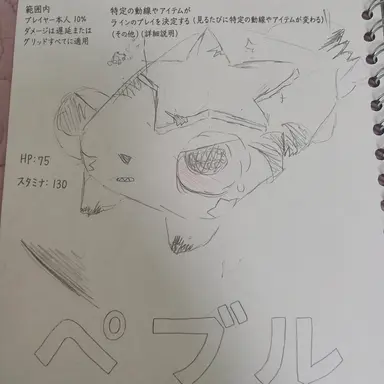 範囲内
プレイヤー本人 10%
ダメージは遅延または
グリッドすべてに適用
特定の動線やアイテムが
ラインのプレイを決定する (見るたびに特定の動線やアイテムが変わる)
(その他) (詳細説明)
HP: 75
スタミナ: 130
ペブル